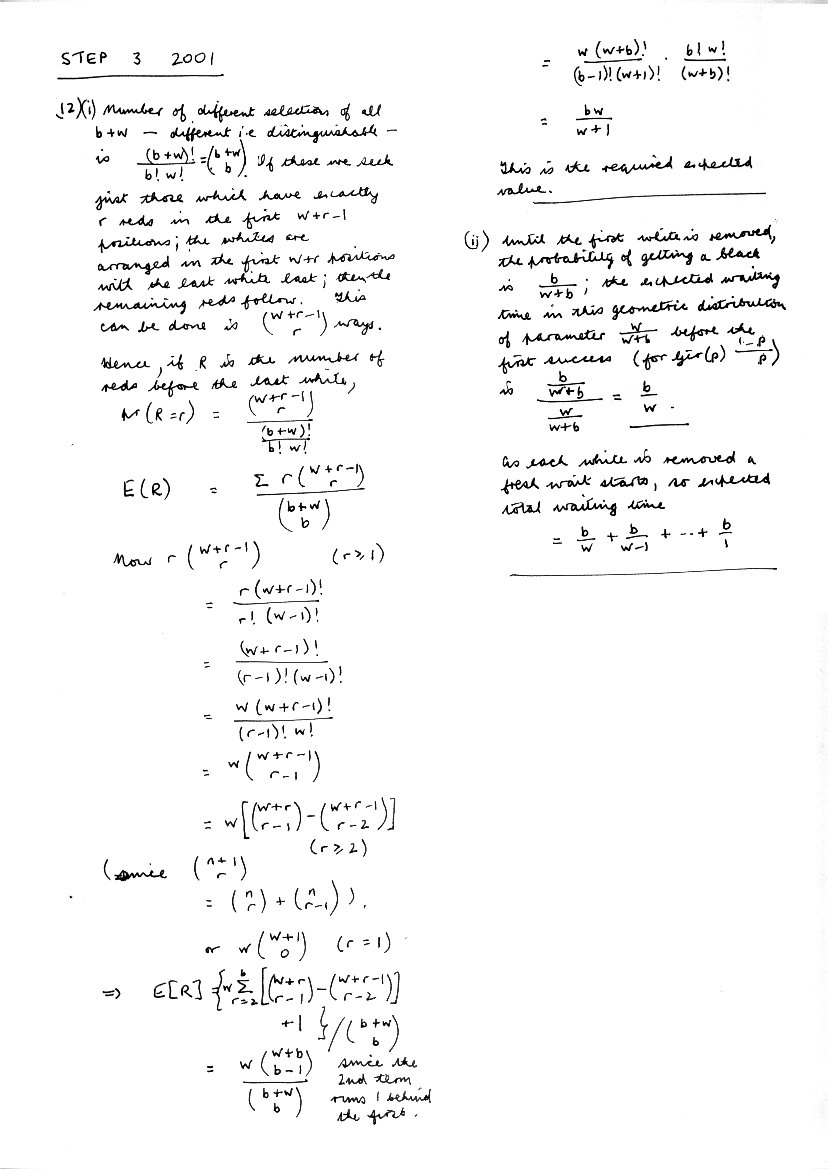 STEP 3 2001
12)(i) Number of different selection of all
b+w — different i.e distinguishable —
is (b+w)!/(b! w!) = (b+w choose b). Of these we seek
just those which have exactly
r reds in the first w+r-1
positions; the whites are
arranged in the first w+r positions
with the last white last; then the
remaining reds follow. This
can be done is (w+r-1 choose r) ways.
Hence, if R is the number of
reds before the last white,
Pr(R=r) = (w+r-1 choose r) / ((b+w)!/(b! w!))
E(R) = Σ r (w+r-1 choose r) / (b+w choose b)
Now r (w+r-1 choose r) (r ≥ 1)
= r(w+r-1)! / (r! (w-1)!)
= (w+r-1)! / ((r-1)! (w-1)!)
= w(w+r-1)! / ((r-1)! w!)
= w (w+r-1 choose r-1)
= w [(w+r choose r-1) - (w+r-1 choose r-2)]
(r ≥ 2)
(since (n+1 choose r)
= (n choose r) + (n choose r-1)).
or w (w+1 choose 0) (r=1)
⇒ E[R] = {w Σ_{r=2}^{b} [(w+r choose r-1) - (w+r-1 choose r-2)]
+1 } / (b+w choose b)
= w (w+b choose b-1) / (b+w choose b) since the
2nd term
runs 1 behind
the first.
= w(w+b)! / ((b-1)! (w+1)!) · b! w! / (w+b)!
= bw / (w+1)
This is the required expected
value.
(ii) Until the first white is removed,
the probability of getting a black
is b/(w+b); the expected waiting
time in this geometric distribution
of parameter w/(w+b) before the
first success (for Geo(p) (1-p)/p)
is (b/(w+b)) / (w/(w+b)) = b/w.
As each white is removed a
fresh wait starts, so expected
total waiting time
= b/w + b/(w-1) + ··+ b/1